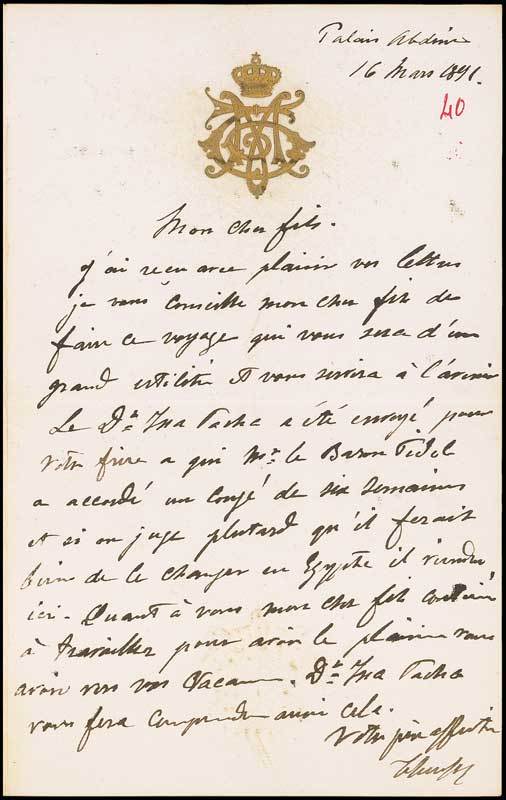 Palais Abdine
16 Mars 1891.
40
Mon cher fils.
J'ai reçu avec plaisir vos lettres
je vous conseille mon cher fils de
faire ce voyage qui vous sera d'une
grand utilité et vous servira à l'avenir
Le Dr. Issa Pacha a été envoyé pour
votre frère a qui Mr. le Baron
a accordé un congé de six semaines
et si on juge plutard qu'il ferait
bien de le changer en Egypte il viendra
ici. Quant à vous mon cher fils
à travailler pour avoir le plaisir
avoir vos Vacances. Dr. Issa Pacha
vous fera comprendre aussi cela.
Votre père affectionné